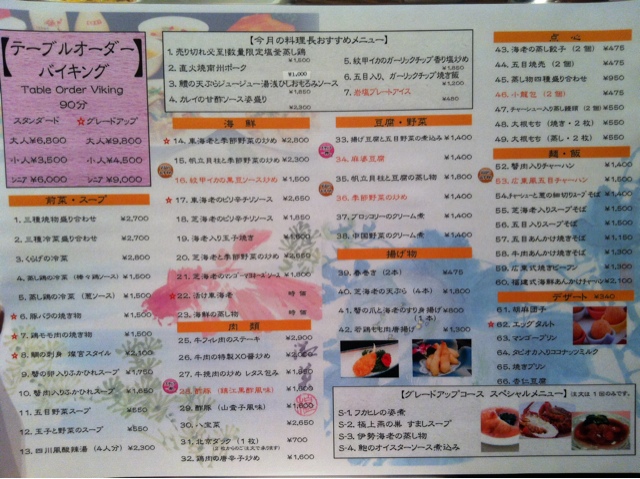 【テーブルオーダー
バイキング】
Table Order Viking
90分
スタンダード ☆グレードアップ
大人¥6,800 大人¥9,800
小人¥3,500 小人¥4,500
シニア¥6,000 シニア¥9,000
前菜・スープ
1. 三種焼物盛り合わせ ¥2,700
2. 三種冷菜盛り合わせ ¥2,700
3. くらげの冷菜 ¥2,800
4. 蒸し鶏の冷菜（棒々鶏ソース） ¥1,500
5. 蒸し鶏の冷菜（葱ソース） ¥1,500
☆ 6. 豚バラの焼き物 ¥1,500
☆ 7. 鶏モモ肉の焼き物 ¥1,500
☆ 8. 鯛の刺身 ¥2,100
9. 蟹の卵入りふかひれスープ ¥1,750
10. 蟹肉入りふかひれスープ ¥1,650
11. 五目野菜スープ ¥550
12. 玉子と野菜のスープ ¥550
13. 四川風酸辣湯（4人分） ¥2,300
【今月の料理長おすすめメニュー】
1. 売り切れ必至!数量限定塩釜蒸し鶏
2. 直火焼南州ポーク
3. 鱈の天ぷらジュージュー湯浅ひしおもろみソース
4. カレイの甘酢ソース姿盛り ¥2,300
5. 紋甲イカのガーリックチップ香り塩炒め
6. 五目入り、ガーリックチップ焼き飯
7. 岩塩プレートアイス
海鮮
☆ 14. 車海老と季節野菜の炒め ¥2,800
15. 帆立貝柱と季節野菜の炒め ¥2,300
16. 紋甲イカの黒豆ソース炒め ¥1,650
☆ 17. 車海老のピリ辛チリソース
18. 芝海老のピリ辛チリソース
19. 海老入り玉子焼き ¥1,600
20. 芝海老と季節野菜の炒め
21. 芝海老のマンゴーマヨネーズソース
☆ 22. 活け車海老 時価
23. 海鮮の蒸し物 時価
肉類
25. 牛フィレ肉のステーキ
26. 牛肉の特製XO醤炒め
27. 牛挽肉の炒め レタス包み
28. 酢豚（鎮江黒酢風味）
29. 酢豚（山査子風味）
30. 八宝菜 ¥2,650
31. 北京ダック（1枚） ¥700
32. 鶏肉の唐辛子炒め
豆腐・野菜
33. 揚げ豆腐と五目野菜の煮込み ¥1,400
34. 麻婆豆腐 ¥1,400
35. 帆立貝柱と豆腐の蒸し物
36. 季節野菜の炒め ¥1,400
37. ブロッコリーのクリーム煮 ¥1,400
38. 中国野菜のクリーム煮 ¥1,400
揚げ物
39. 春巻き（2本） ¥475
40. 芝海老の天ぷら（4本）
41. 蟹の爪と海老のすり身揚げ
42. 若鶏モモ肉唐揚げ
点心
43. 海老の蒸し餃子（2個） ¥475
44. 五目焼売（2個） ¥475
45. 蒸し物四種盛り合わせ ¥950
46. 小籠包（2個） ¥475
47. チャーシュー入り蒸し饅頭（2個） ¥550
48. 大根もち（焼き・2枚） ¥550
49. 大根もち（蒸し・2枚） ¥550
麺・飯
52. 蟹肉入りチャーハン
53. 広東風五目チャーハン
54. チャーシューと葱の細切りスープそば ¥1,400
55. 芝海老入りスープそば
56. 五目入りスープそば
57. 五目あんかけ焼きそば
58. 牛肉あんかけ焼きそば
59. 広東式焼きビーフン
60. 福建式海鮮あんかけチャーハン ¥2,100
デザート ¥240
61. 胡麻団子
☆ 62. エッグタルト
63. マンゴープリン
64. タピオカ入りココナッツミルク
65. 焼きプリン
66. 杏仁豆腐
【グレードアップコース スペシャルメニュー】 注文は1回のみです。
S-1. フカヒレの姿煮
S-2. 極上燕の巣 すましスープ
S-3. 伊勢海老の蒸し物
S-4. 鮑のオイスターソース煮込み